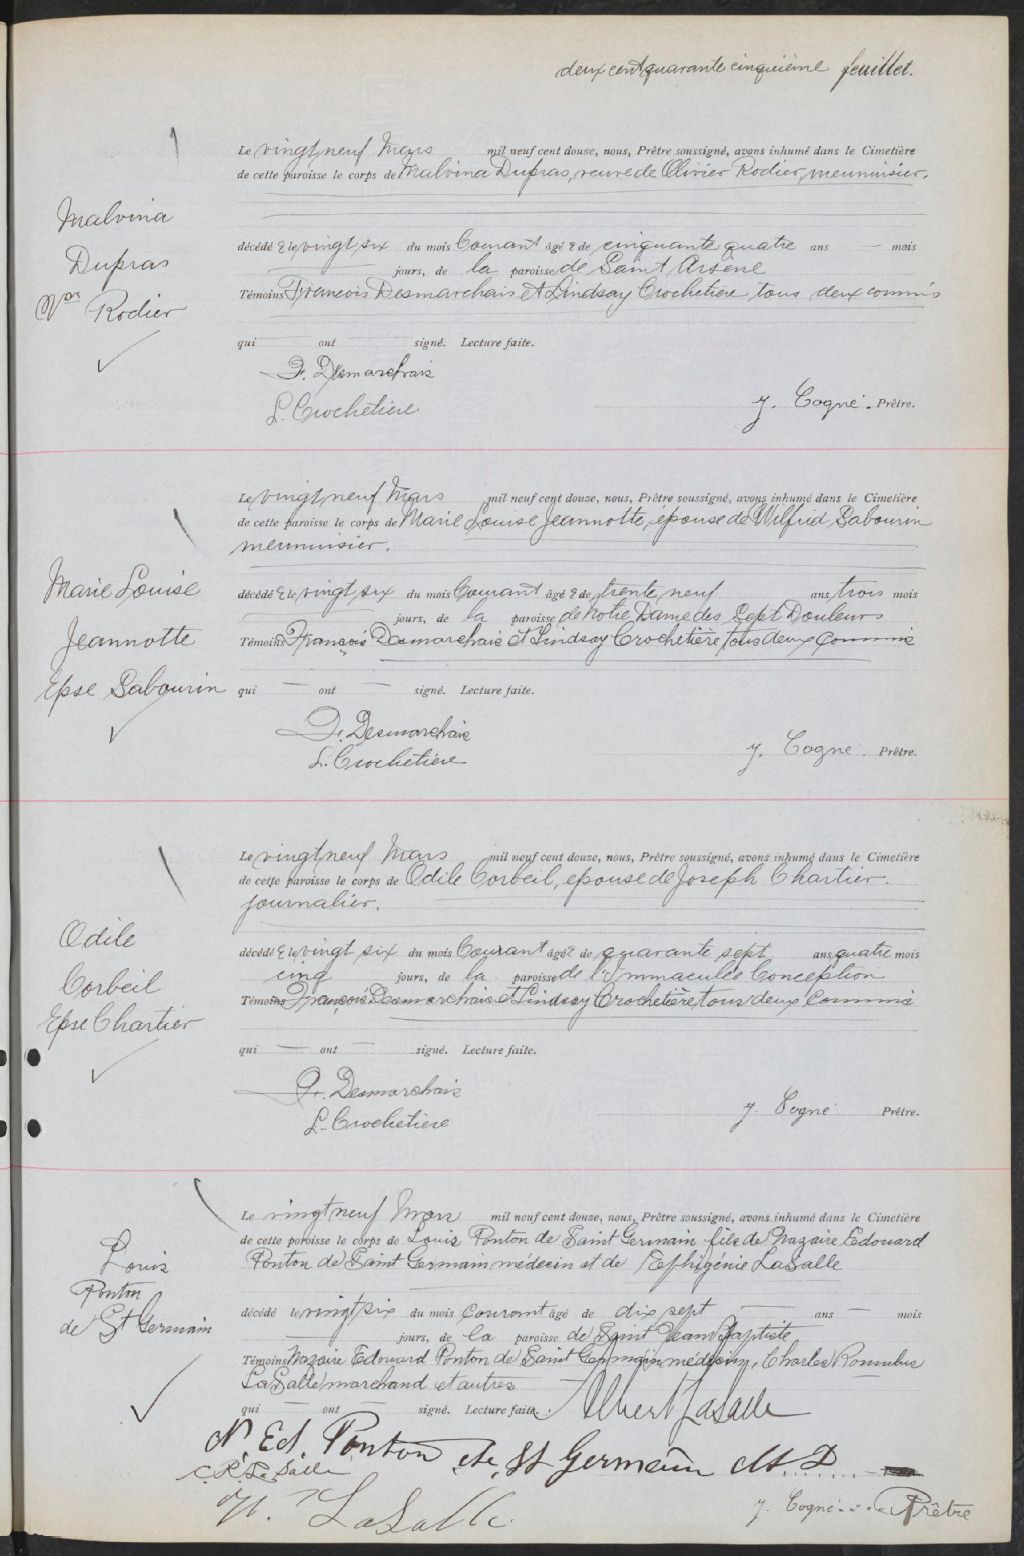 deux cent quarante cinquième feuillet.
Le vingt neuf Mars mil neuf cent douze, nous, Prêtre soussigné, avons inhumé dans le Cimetière
de cette paroisse le corps de Malvina Dupras, veuve de Olivier Rodier, menuisier.
Malvina
Dupras
Vve Rodier
décédé e le vingt six du mois Courant âgé e de cinquante quatre ans — mois
— jours, de la paroisse de Saint Arsène
Témoins François Desmarchais et Lindsay Crochetière tous deux commis
qui ont signé. Lecture faite.
F. Desmarchais
L. Crochetiere
J. Cogné. Prêtre.
Le vingt neuf Mars mil neuf cent douze, nous, Prêtre soussigné, avons inhumé dans le Cimetière
de cette paroisse le corps de Marie Louise Jeannotte, épouse de Wilfrid Sabourin
menuisier.
Marie Louise
Jeannotte
Epse Sabourin
décédé e le vingt six du mois Courant âgé e de trente neuf ans trois mois
— jours, de la paroisse de Notre Dame des Sept Douleurs
Témoins François Desmarchais et Lindsay Crochetière tous deux commis
qui — ont — signé. Lecture faite.
F. Desmarchais
L. Crochetiere
J. Cogné. Prêtre.
Le vingt neuf Mars mil neuf cent douze, nous, Prêtre soussigné, avons inhumé dans le Cimetière
de cette paroisse le corps de Odile Corbeil, epouse de Joseph Chartier.
journalier.
Odile
Corbeil
Epse Chartier
décédé e le vingt six du mois Courant âgé e de quarante sept ans quatre mois
cinq jours, de la paroisse de l'Immaculée Conception
Témoins François Desmarchais et Lindsay Crochetière tous deux Commis
qui — ont — signé. Lecture faite.
F. Desmarchais
L. Crochetiere
J. Cogné Prêtre.
Le vingt neuf Mars mil neuf cent douze, nous, Prêtre soussigné, avons inhumé dans le Cimetière
de cette paroisse le corps de Louis Ponton de Saint Germain fils de Nazaire Edouard
Ponton de Saint Germain médecin et de Ephigénie LaSalle
Louis
Ponton
de St Germain
décédé le vingt six du mois courant âgé de dix sept — ans — mois
— jours, de la paroisse de Saint Jean Baptiste
Témoins Nazaire Edouard Ponton de Saint Germain médecin, Charles Romulus
LaSalle marchand et autres
qui — ont — signé. Lecture faite.
Albert LaSalle
N. Ed. Ponton de St Germain M. D.
C. R. LaSalle
LaSalle
J. Cogné Prêtre